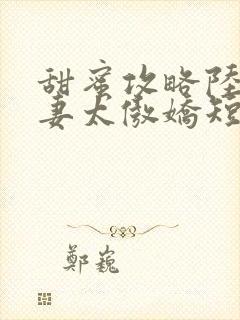 甜蜜攻略陸
妻太傲嬌短
鄭巍